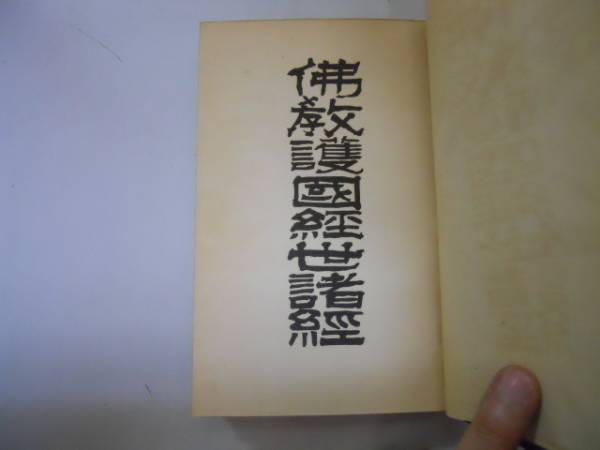 佛敎護國經世諸經